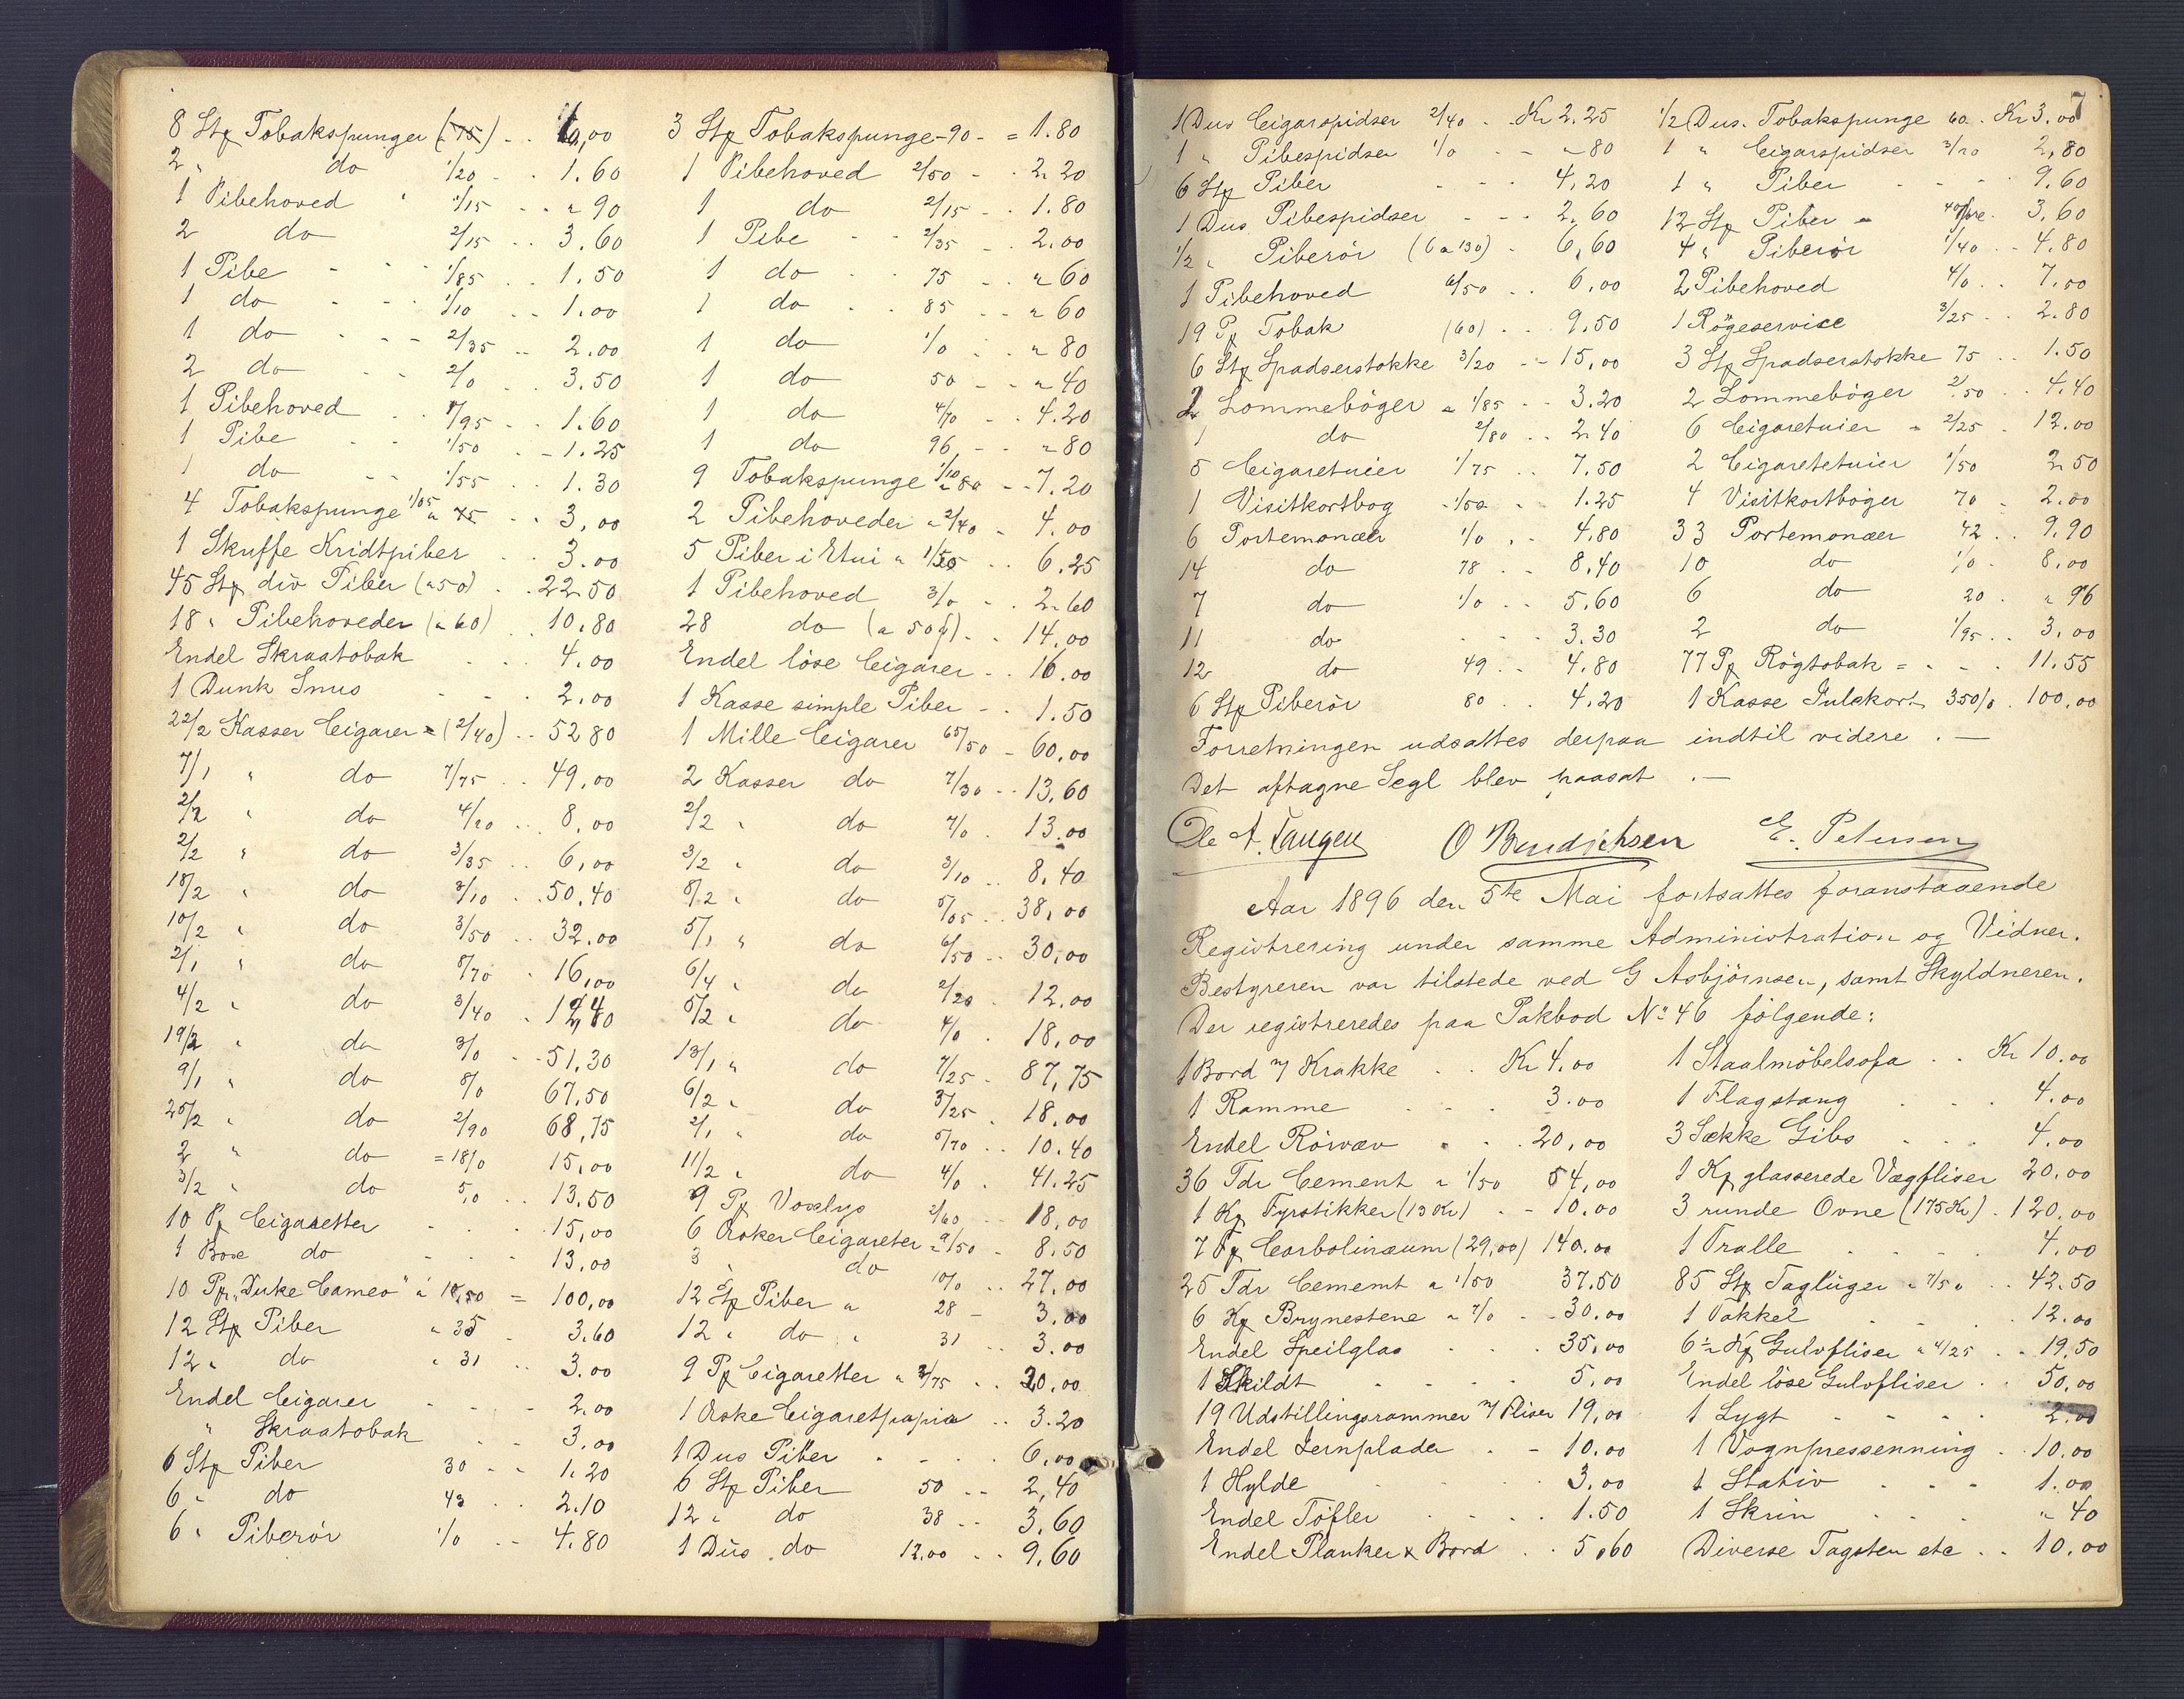 8 Stk Tobakspunger (-75) . . 6,00
2 " do 1/20 - . 1.60
1 Pibehoved " 1/15 . . " 90
2 do 2/15 . . 3.60
1 Pibe - - - 1/85 . . 1.50
1 do - - - 1/10 . . 1.00
1 do . - - - 2/35 . . 2.00
2 do . . 2/0 . . 3.50
1 Pibehoved . . 1/95 . . 1.60
1 Pibe . . 1/50 . - 1.25
1 do - - 1/55 . . 1.30
4 Tobakspunge 1/05 a 75 . . 3,00
1 Skuffe Kridtpiber . . 3.00
45 Stk div Piber (a 50) . . 22.50
18 " Pibehoveder (a 60) . . 10.80
Endel Skraatobak . . . 4.00
1 Dunk Snus - - . 2.00
22/2 Kasser Cigarer = (2/40) . . 52 80
7/1 " do 7/75 . . 49,00
2/2 " do 4/20 . . 8,00
2/2 " do 3/35 . . 6,00
18/2 " do 3/10 . . 50,40
10/2 " do 3/50 . . 32.00
2/1 " do 8/70 . 16,00
4/2 " do 3/40 . 12,40
19/2 " do 3/0 . - 51,30
9/1 " do 8/0 67.50
25/2 " do 2/90 68,75
2 " do = 18/0 15,00
3/2 " do 5,0 . . 13.50
10 Pk Cigaretter . . . 15,00
1 Boxe do - - - 13.00
10 Pk "Duke Cameo" a 10,50 = 100,00
12 Stk Piber " 35 - 3.60
12 " do " 31 . . 3.00
Endel Cigarer - - - 2.00
" Skraatobak . . 3,00
6 Stk Piber 30 - - 1.20
6 " do 43 . . 2.10
6 " Piberör 1/0 . . 4.80
3 Stk Tobakspunge - 90 - = 1.80
1 Pibehoved 2/50 - . 2.20
1 do 2/15 - . 1.80
1 Pibe - - 2/35 - . 2.00
1 do . . 75 - . " 60
1 do . 85 . . " 60
1 do 1/0 . . " 80
1 do 50 - - " 40
1 do 4/70 . . 4.20
1 do 96 - - " 80
9 Tobakspunge 1/10 a 80 - - 7.20
2 Pibehoveder a 2/40 . 4.00
5 Piber i Etui a 1/50 . . 6.25
1 Pibehoved 3/0 . . 2.60
28 do (a 50 ) . . 14.00
Endel löse Cigarer . . 16.00
1 Kasse simple Piber - . 1.50
1 Mille Cigarer 65/50 - 60,00
2 Kasser do 7/30 . . 13,60
2/2 " do 7/0 . 13.00
3/2 " do 3/10 . . 8.40
8/2 " do 5/05 . . 38,00
5/1 " do 6/50 . . 30,00
6/4 " do 2/20 . 12.00
5/2 " do 4/0 . 18,00
13/1 " do 7/25 - 87,75
6/2 " do 3/25 . 18.00
2/1 " do 5/70 . . 10.40
11/2 " do 4/0 . 41.25
9 Pk Voxlys 2/60 . . 18,00
6 Æsker Cigareter a 9/50 - 8.50
3 " do 10/0 . . 27.00
12 Stk Piber a 28 - 3.00
12 " do " 31 . . 3.00
9 Pk Cigaretter a 3/75 . . 20.00
1 Æske Cigaretpapir . . 3.20
1 Dus Piber . - . . 6,00
6 Stk Piber 50 . . 2,40
12 " do 38 . . 3.60
1 Dus . do 12.00 . . 9,60
7
1 Dus Cigarspidser 2/40 . . Kr 2.25
1 " Pibespidser 1/0 - - " 80
6 Stk Piber - - - 4.20
1 Dus. Pibespidser - - . 2.60
1/2 " Piberör (6 a 130) - 6,60
1 Pibehoved 6/50 . . 6,00
19 Pk Tobak (60) . . 9.50
6 Stk Spadserstokke 3/20 - - 15,00
2 Lommebøger a 1/85 - - 3.20
1 do 2/80 . . 2.40
5 Cigaretuier 1/75 . . 7.50
1 Visitkortbog 1/50 - 1.25
6 Portemonæer 1/0 . . 4.80
14 do 78 . . 8.40
7 do 1/0 . . 5.60
11 do - - - 3.30
12 do 49 . . 4.80
6 Stk Piberör 80 . . 4.20
1/2 Dus. Tobakspunge 60. . Kr 3.00
1 " Cigarspidser 3/20 2,80
1 " Piber - - - 9,60
12 Stk Piber a 40øre . 3.60
4 " Piberör 1/40 . - 4.80
2 Pibehoved 4/0 . . 7.00
1 Rögeservice 3/25 . . 2.80
3 Stk Spadserstokke 75 . . 1.50
2 Lommebøger 2/50 . . 4.40
6 Cigaretuier " 2/25 . 12.00
2 Cigaretetuier 1/50 2.50
4 Visitkortbøger 70 . 2.00
33 Portemonæer 42 . . 9.90
10 do 1/0 . 8,00
6 do 20 . " 96
2 do 1/95 . . 3,00
77 Pk Rögtobak = - - . 11.55
1 Kasse Julekort 350/0 . 100,00
Forretningen udsattes derpaa indtil videre . —
Det aftagne Segl blev paasat . —
Ole A. Taugen O Bendichsen E. Petersen
Aar 1896 den 5te Mai fortsattes foranstaaende
Registrering under samme Administration og Vidner.
Bestyreren var tilstede ved G Asbjörnsen, samt Skyldneren.
Der registreredes paa Pakbod No 46 fölgende:
1 Bord m/ Krakke . . Kr 4.00
1 Ramme . . . 3.00
Endel Rörvæv . . . 20,00
36 Tdr Cement a 1/50 54,00
1 Kg Fyrstikker (13 Kr) . - 10.00
7 Fg Carbolinæum (29,00) 140.00
25 Tdr Cememt a 1/50 37.50
6 Kg Brynestene a 7/0 . - 30.00
Endel Speilglas . . . 35,00
1 Skildt - - - - 5,00
19 Udstillingsrammer m/ Fliser 19,00
Endel Jernplader . - 10.00
1 Hylde . . 3.00
Endel Töfler . . . . 1.50
Endel Planker & Bord . . 5,60
1 Staalmöbelsofa . . Kr 10.00
1 Flagstang . . . 4.00
3 Sække Gibs - - . 4.00
1 Kp glasserede Vægfliser 20.00
3 runde Ovne (175 Kr) . 120.00
1 Tralle . . . . 4.00
85 Stk Taglüger a 7/50 . . 42.50
1 Takkel . . . . 12.00
6 1/2 Kg Gulvfliser a 4/25 . . 19,50
Endel löse Gulvfliser . . 50.00
1 Lygt - - - - 2.00
1 Vognpressenning . . 10.00
1 Stativ - - - 1.00
1 Skrin . . . . " 40
Diverse Tagsten etc . . 10.00